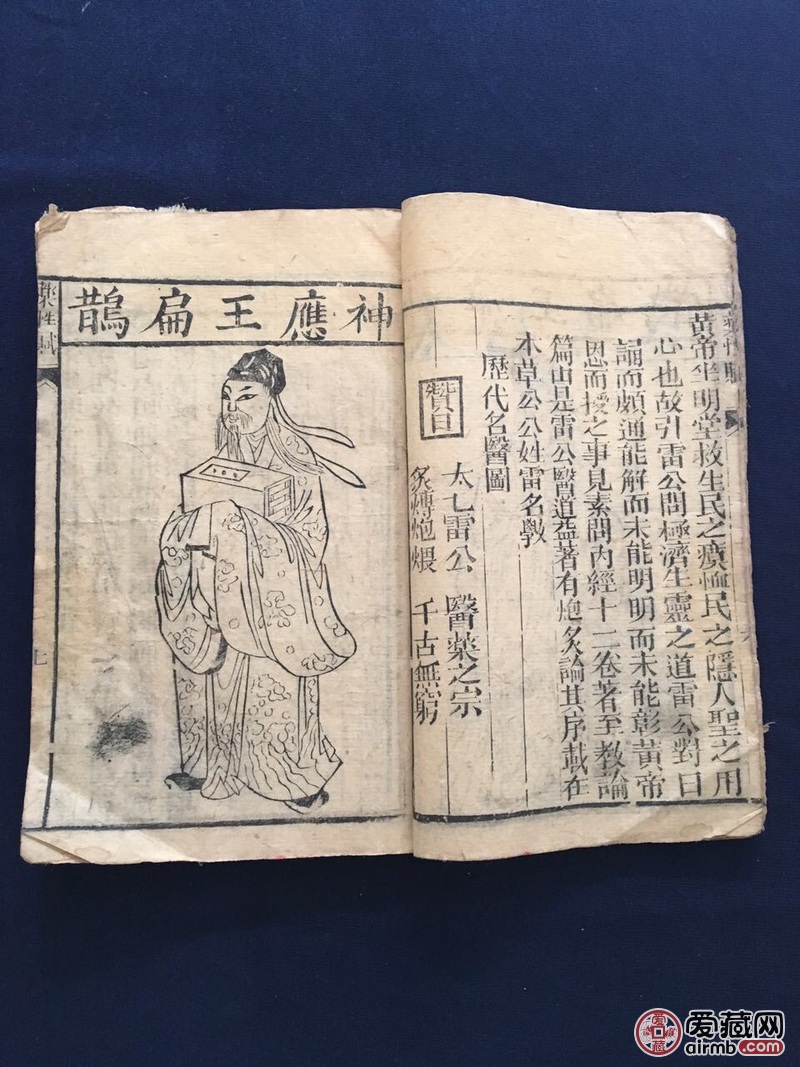 藥性賦
黃帝坐明堂救生民之瘼恤民之隱人聖之用
心也故引雷公問極濟生靈之道雷公對曰
誦而頗通能解而未能明明而未能彰黃帝
恩而授之事見素問內經十二卷著至教論
篇由是雷公醫道益著有炮炙論其序載在
本草公公姓雷名斆
歷代名醫圖
贊曰
太乙雷公 醫藥之宗
炙煿炮煨 千古無窮
神應王扁鵲
藥性賦
七
爱藏网
airmb.com